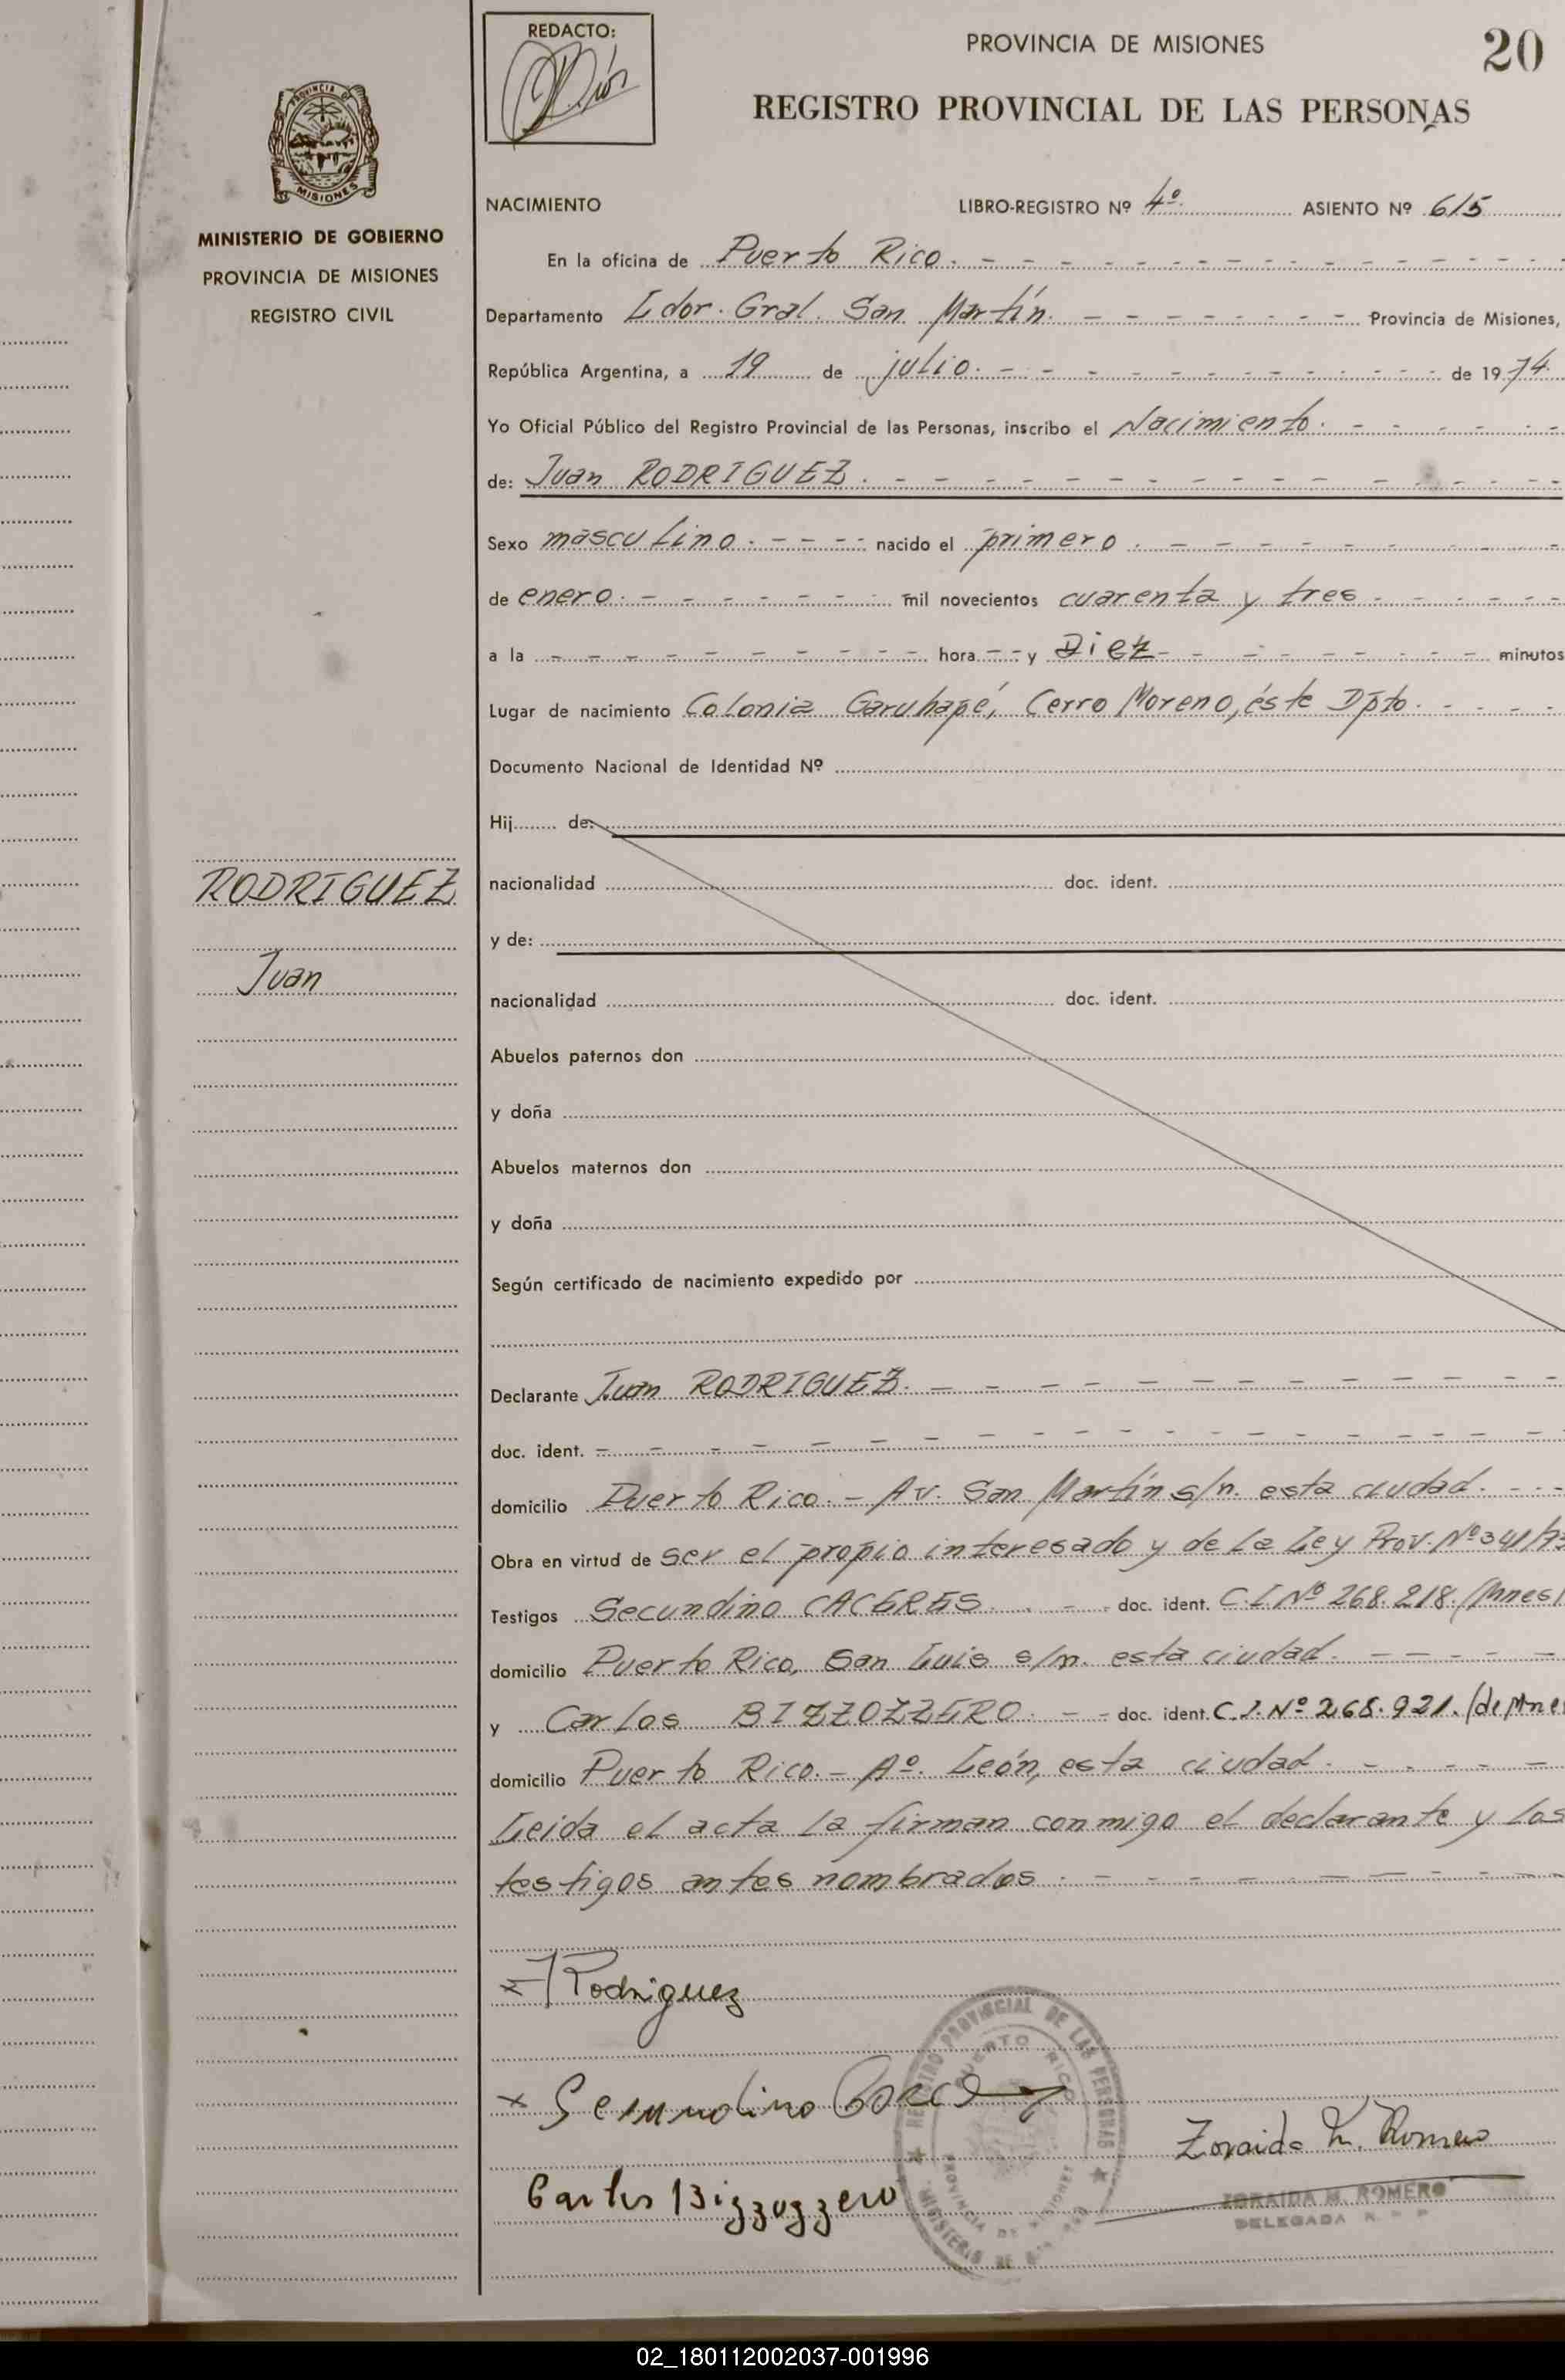 REDACTO:
PROVINCIA DE MISIONES
20
REGISTRO PROVINCIAL DE LAS PERSONAS
PROVINCIA D
MISIONES
MINISTERIO DE GOBIERNO
PROVINCIA DE MISIONES
REGISTRO CIVIL
NACIMIENTO LIBRO-REGISTRO Nº 4º ASIENTO Nº 615
En la oficina de Puerto Rico.
Departamento Ldor. Gral. San Martín. Provincia de Misiones,
República Argentina, a 19 de julio. de 1974.
Yo Oficial Público del Registro Provincial de las Personas, inscribo el Nacimiento.
de: Juan RODRIGUEZ.
Sexo masculino. nacido el primero.
de enero. mil novecientos cuarenta y tres
a la hora y Diez minutos
Lugar de nacimiento Colonia Garuhapé, Cerro Moreno, éste Dpto.
Documento Nacional de Identidad Nº
Hij de:
RODRIGUEZ
Juan
nacionalidad doc. ident.
y de:
nacionalidad doc. ident.
Abuelos paternos don
y doña
Abuelos maternos don
y doña
Según certificado de nacimiento expedido por
Declarante Juan RODRIGUEZ.
doc. ident.
domicilio Puerto Rico. - Av. San Martín s/n. esta ciudad.
Obra en virtud de ser el propio interesado y de la Ley Prov. Nº 341/73
Testigos Secundino CACERES. doc. ident. C.I. Nº 268.218. (Mnes)
domicilio Puerto Rico, San Luis s/n. esta ciudad.
y Carlos BIZZOZZERO. doc. ident. C.I. Nº 268.921. (de Mne
domicilio Puerto Rico. - Aº. León, esta ciudad.
Leida el acta la firman conmigo el declarante y los
testigos antes nombrados.
J Rodriguez
REGISTRO PROVINCIAL DE LAS PERSONAS
PUERTO RICO
PROVINCIA DE MISIONES
MINISTERIO DE
Zoraida M. Romero
Carlos Bizzozzero
ZORAIDA M. ROMERO
DELEGADA R. P. P
02_180112002037-001996